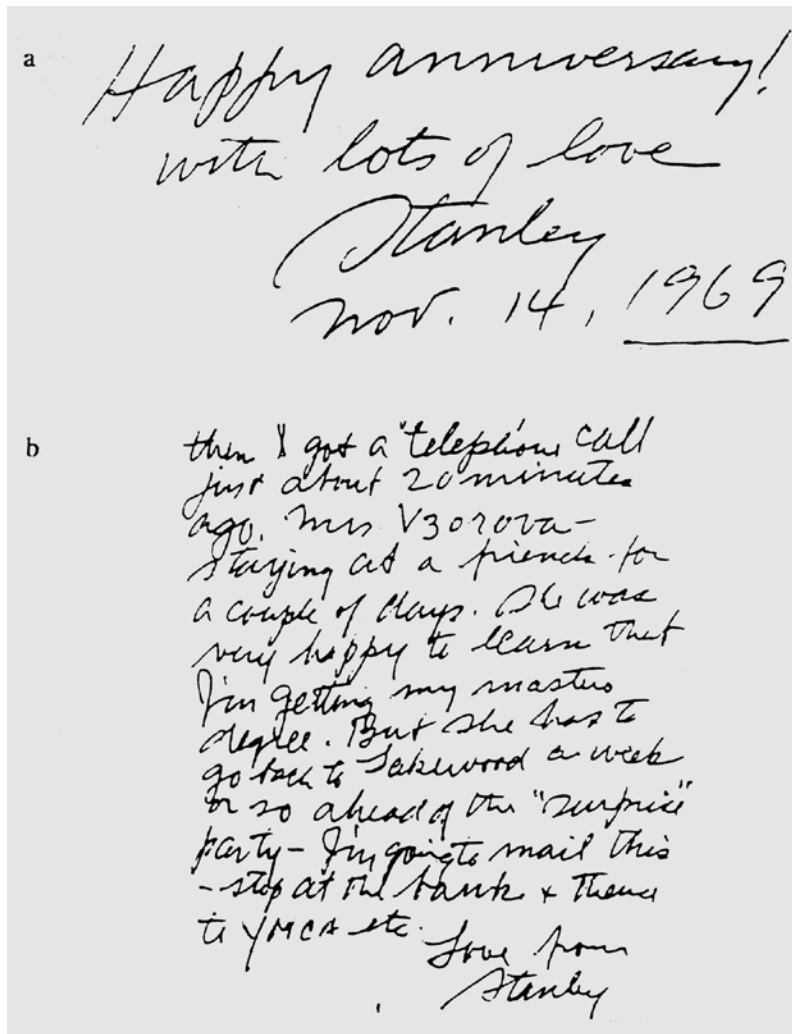 a
Happy anniversary!
with lots of love
Stanley
Nov. 14, 1969
b
then I got a telephone call
just about 20 minutes
ago. Mrs Vzorova –
staying at a friends for
a couple of days. She was
very happy to learn that
I'm getting my masters
degree. But she has to
go back to Lakewood a week
or so ahead of the "surprise"
party – I'm going to mail this
– stop at the bank & thence
to YMCA etc.
Love from
Stanley